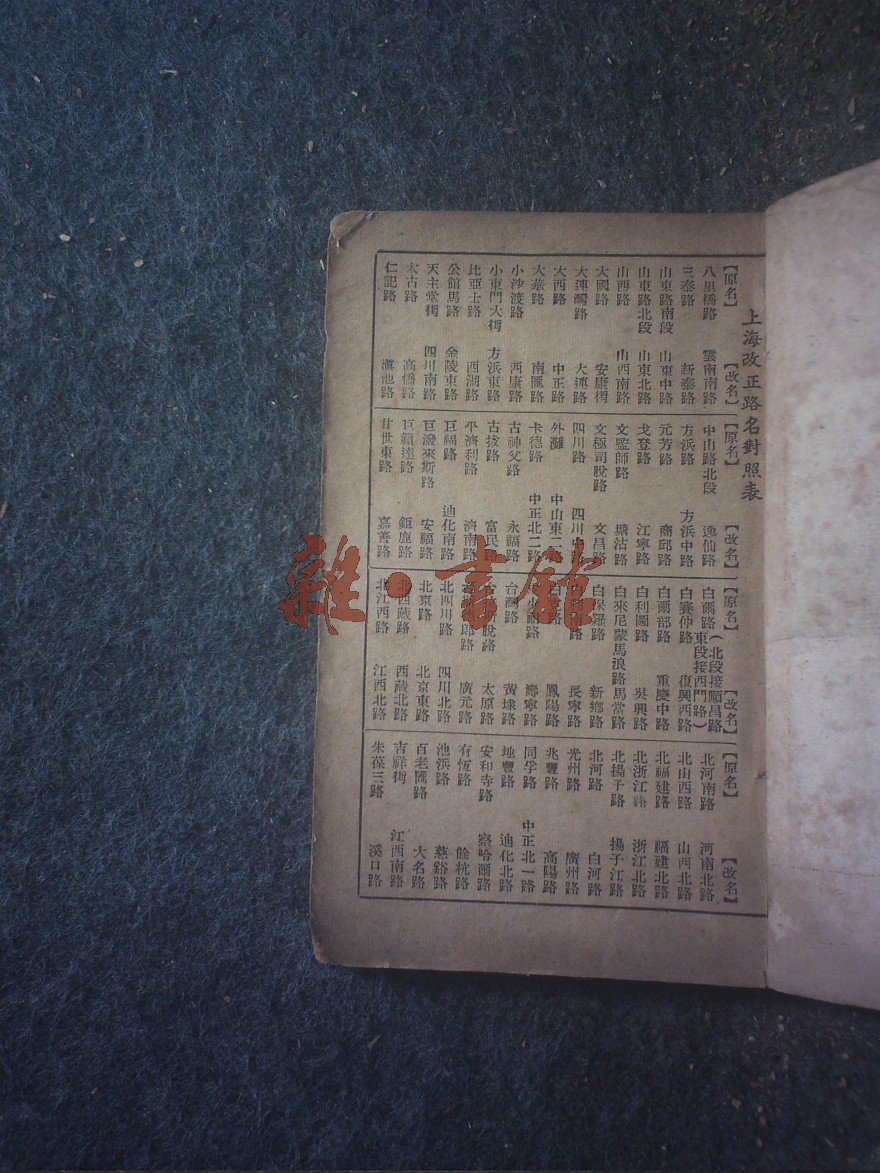 上海改正路名對照表
【原名】 【改名】
八里橋路 雲南南路
三泰路 新泰路
山東路南段 山東中路
山東路北段 山東北路
山西路 山西南路
大國路 安康街
大連灣路 大連路
大西路 中正路
大華路 南匯路
小沙渡路 西康路
小東門大街 方浜東路
比亞士路 西湖路
公館馬路 金陵東路
天主堂街 四川南路
太古路 高橋路
仁記路 滇池路
【原名】 【改名】
中山路北段 逸仙路
方浜路 方浜中路
元芳路 商邱路
戈登路 江寧路
文監師路 塘沽路
文極司脫路 文昌路
四川路 四川中路
外灘 中山東
卡德路 中正北二路
古神父路 永福路
古拔路 富民
平濟利路 濟南路
巨福路 迪化南路
巨潑來斯路 安福路
巨籟達路 鉅鹿路
甘世東路 嘉善路
【原名】 【改名】
白爾路(北段接順昌路東段接西門路)
白賽仲路 復興西路
白爾部路 重慶中路
白利國路 吳興路
白來尼蒙馬浪路 馬當路
白保羅路 新鄉路
長寧路
白 路 鳳陽路
壽寧路
台灣路 黃埭路
脫路 太原路
郎路 廣元路
北四川路 四川北路
北京路 北京東路
北西藏路 西藏北路
北江西路 江西北路
【原名】 【改名】
北河南路 河南北路
北山西路 山西北路
北福建路 福建北路
北浙江路 浙江北路
北揚子路 揚子江路
北河路 白河路
光州路 廣州路
兆豐路 高陽路
同孚路 中正北一路
地豐路 迪化北路
安和寺路 察哈爾路
有恆路 餘杭路
池浜路 慈谿路
百老匯路 大名路
吉祥街 江西南路
朱葆三路 溪口路
雜·書館